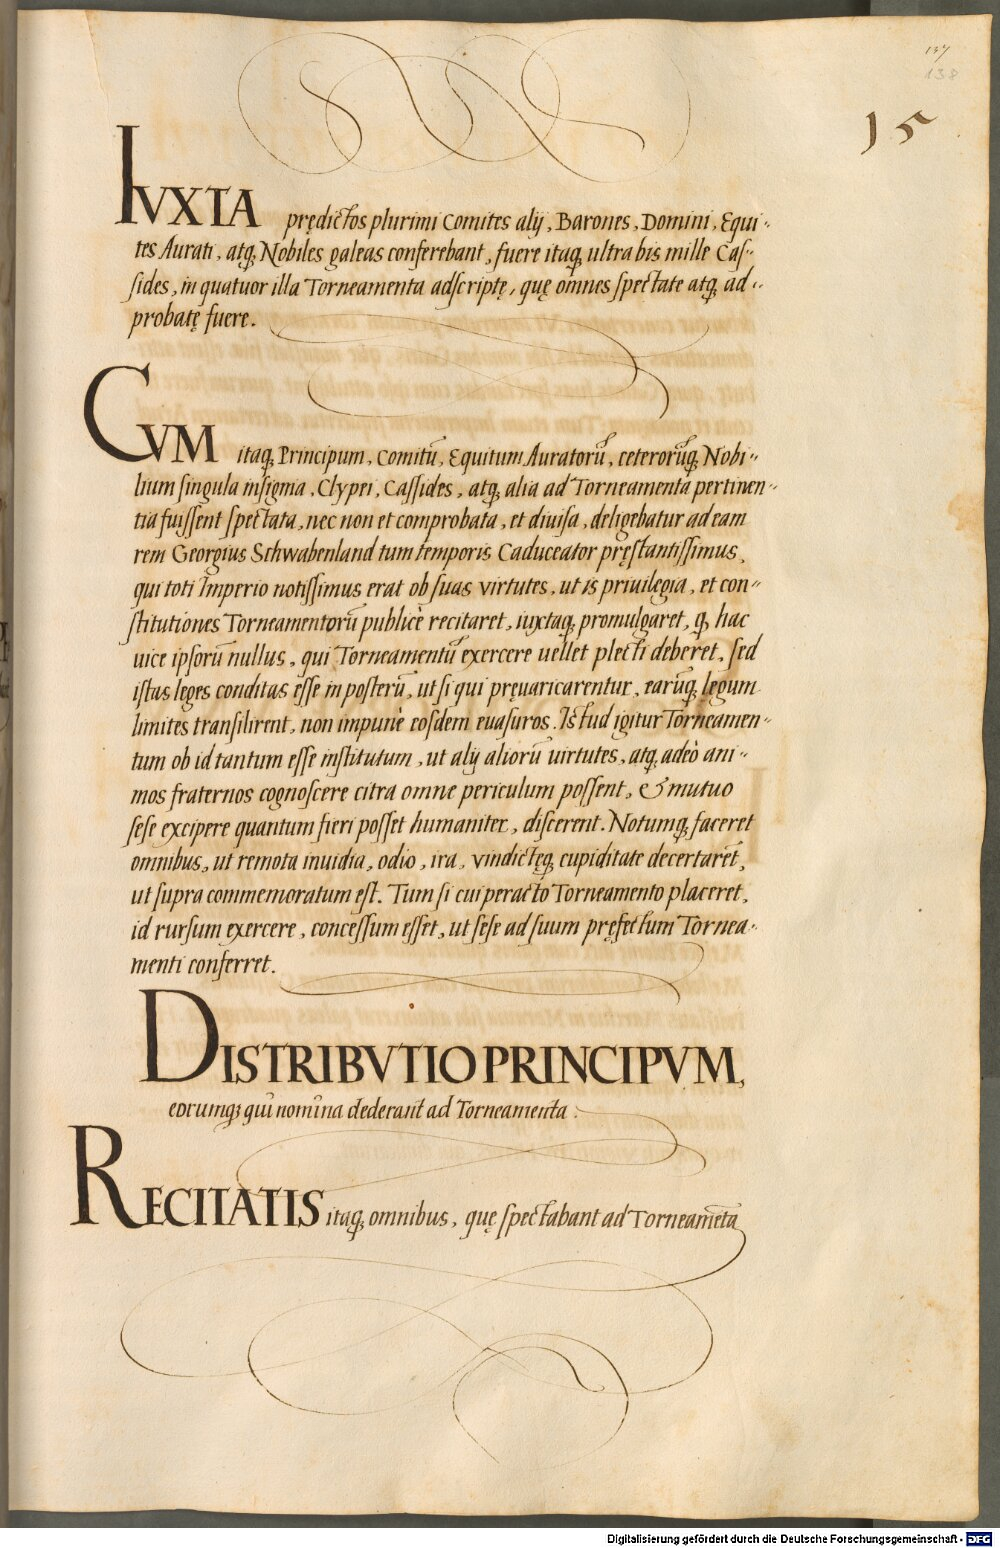 137
138
15
IVXTA prędictos plurimi Comites alij, Barones, Domini, Equi-
tes Aurati, atq; Nobiles galeas conferebant, fuere itaq; ultra bis mille Cas-
sides, in quatuor illa Torneamenta adscriptę, quę omnes spectate atq; ad-
probatę fuere.
CVM itaq; Principum, Comitū, Equitum Auratorū, ceterorūq; Nobi-
lium singula insignia, Clypei, Cassides, atq; alia ad Torneamenta pertinen-
tia fuissent spectata, nec non et comprobata, et diuisa, deligebatur ad eam
rem Georgius Schwabenland tum temporis Caduceator pręstantissimus,
qui toti Imperio notissimus erat ob suas virtutes, ut is priuilegia, et con-
stitutiones Torneamentorū publicè recitaret, iuxtaq; promulgaret, q; hac
uice ipsorū nullus, qui Torneamentū exercere uellet plecti deberet, sed
istas leges conditas esse in posterū, ut si qui pręuaricarentur, earūq; legum
limites transilirent, non impunè eosdem euasuros. Istud igitur Torneamen-
tum ob id tantum esse institutum, ut alij aliorū uirtutes, atq; adeò ani-
mos fraternos cognoscere citra omne periculum possent, & mutuo
sese excipere quantum fieri posset humaniter, discerent. Notumq; faceret
omnibus, ut remota inuidia, odio, ira, vindictęq; cupiditate decertarēt,
ut supra commemoratum est. Tum si cui peracto Torneamento placeret,
id rursum exercere, concessum esset, ut sese ad suum pręfectum Tornea-
menti conferret.
DISTRIBVTIO PRINCIPVM,
eorumq; qui nomina dederant ad Torneamenta.
RECITATIS itaq; omnibus, quę spectabant ad Torneamēta
Digitalisierung gefördert durch die Deutsche Forschungsgemeinschaft - DFG